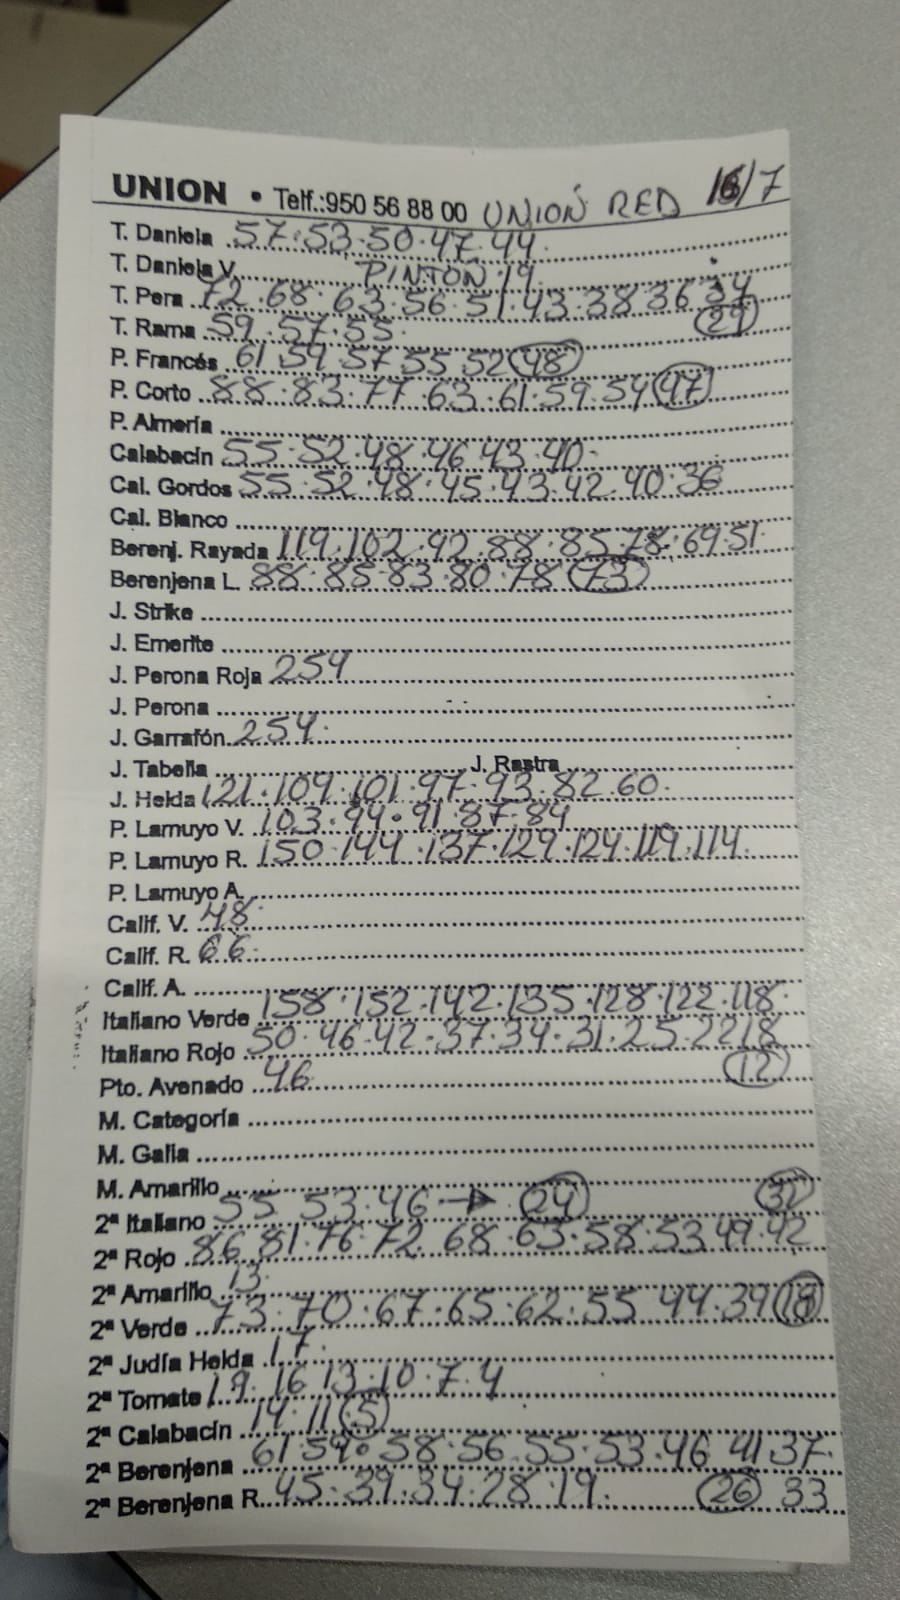 UNION • Telf.:950 56 88 00 UNIÓN RED 16/7
T. Daniela 57.53.50.47.44.
T. Daniela V. PINTON 19
T. Pera 72.68.63.56.51.43.38 36 34
T. Rama 59.57.55. (29)
P. Francés 61 59 57 55 52 (48)
P. Corto 88.83.77.63.61.59.54 (47)
P. Almería
Calabacín 55.52.48.46.43.40.
Cal. Gordos 55.52.48.45.43.42.40.36
Cal. Blanco
Berenj. Rayada 119.102.92.88.85.78.69.51
Berenjena L. 88.85.83.80.78 (73)
J. Strike
J. Emerite
J. Perona Roja 254
J. Perona
J. Garrafón 254.
J. Tabella J. Rastra
J. Helda 121.109.101.97.93.82.60.
P. Lamuyo V. 103.94.91.87.84
P. Lamuyo R. 150.144.137.129.124.119.114.
P. Lamuyo A.
Calif. V. 48.
Calif. R. 66.
Calif. A.
Italiano Verde 158.152.142.135.128.122.118.
Italiano Rojo 50.46.42.37.34.31.25.22 18
Pto. Avenado 46 (12)
M. Categoría
M. Galia
M. Amarillo
2ª Italiano 55 53.46 → (24) (32)
2ª Rojo 86 81.76.72 68.63.58.53 49.42
2ª Amarillo 13.
2ª Verde 73.70.67.65.62.55 44.39
2ª Judía Helda 17.
2ª Tomate 19.16 13.10.7.4
2ª Calabacín 14.11 (5)
2ª Berenjena 61.59.58.56.55.53.46 41 37.
2ª Berenjena R. 45.39.34.28.19. (26) 33